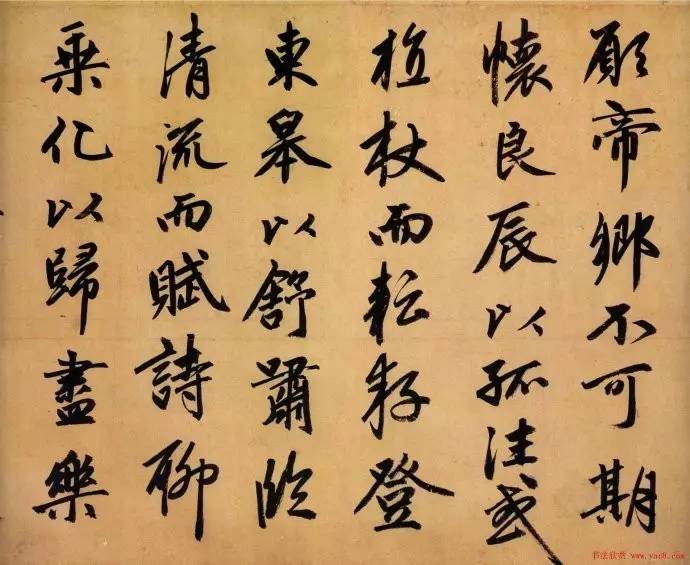 願帝鄉不可期
懷良辰以孤往或
植杖而耘耔登
東皋以舒嘯臨
清流而賦詩聊
乗化以歸盡樂
书法欣赏 www.yac8.com